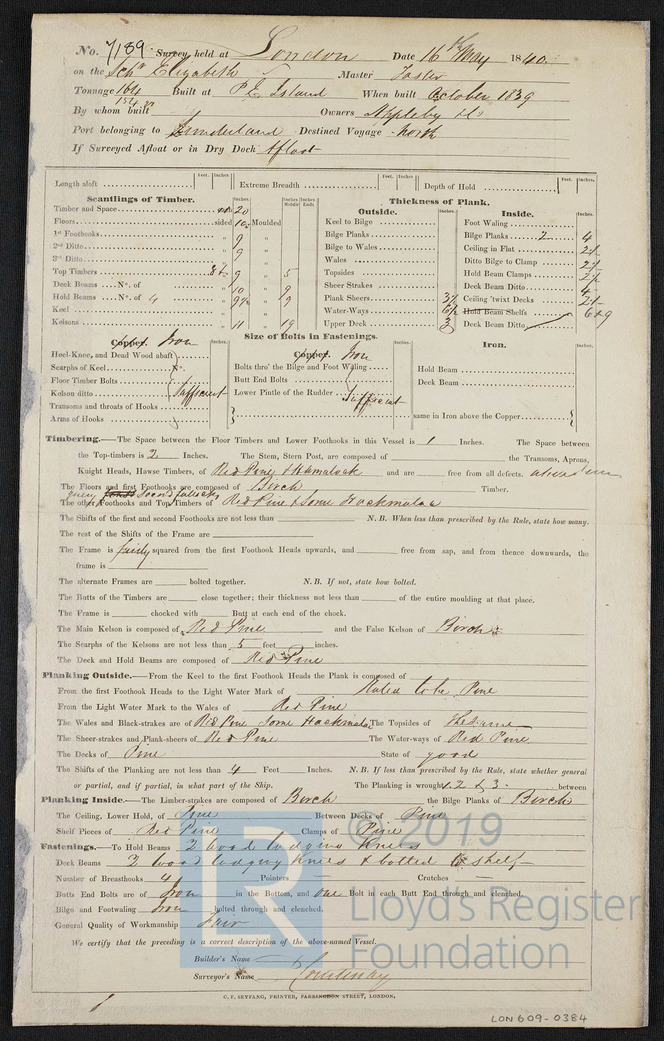 No. 7189 Survey held at London Date 16th May 1840
on the Schr Elizabeth Master
Tonnage 164 Built at P E Island When built October 1839
154
By whom built Owners Appleby & Co
Port belonging to Sunderland Destined Voyage North
If Surveyed Afloat or in Dry Dock Afloat
Feet. Inches. Feet. Inches. Feet. Inches.
Length aloft Extreme Breadth Depth of Hold
Scantlings of Timber. Inches. Inches Middle Inches Ends Thickness of Plank.
Outside. Inches. Inside. Inches.
Timber and Space 20 Keel to Bilge Foot Waling
Floors sided 10 Moulded Bilge Planks Bilge Planks 2 4
1st Foothooks 9 " Bilge to Wales Ceiling in Flat 2½
2nd Ditto 9 " Wales Ditto Bilge to Clamp 2½
3rd Ditto " Topsides Hold Beam Clamps 2½
Top Timbers 9 " 5 Sheer Strakes Deck Beam Ditto 4
Deck Beams No. of 10 " 9 Plank Sheers 3½ Ceiling 'twixt Decks 2½
Hold Beams No. of 4 9½ " 9 Water-Ways Hold Beam Shelfs 6 x 9
Keel " Upper Deck 3 Deck Beam Ditto
Kelsons 11 " 19
Copper. Iron Inches. Size of Bolts in Fastenings. Copper. Iron Inches. Iron. Inches.
Heel-Knee, and Dead Wood abaft Bolts thro' the Bilge and Foot Waling Hold Beam
Scarphs of Keel Butt End Bolts Deck Beam
Floor Timber Bolts Lower Pintle of the Rudder
Kelson ditto Sufficient Sufficient
Transoms and throats of Hooks same in Iron above the Copper
Arms of Hooks
Timbering.—The Space between the Floor Timbers and Lower Foothooks in this Vessel is 1 Inches. The Space between
the Top-timbers is 2 Inches. The Stem, Stern Post, are composed of the Transoms, Aprons,
Knight Heads, Hawse Timbers, of Red Pine & Hamalock and are free from all defects.
The Floors and first Foothooks are composed of Birch Timber.
The other Foothooks and Top Timbers of Red Pine & Some Hackmatac
The Shifts of the first and second Foothooks are not less than N.B. When less than prescribed by the Rule, state how many.
The rest of the Shifts of the Frame are
The Frame is fairly squared from the first Foothook Heads upwards, and free from sap, and from thence downwards, the
frame is
The alternate Frames are bolted together. N.B. If not, state how bolted.
The Butts of the Timbers are close together; their thickness not less than of the entire moulding at that place.
The Frame is chocked with Butt at each end of the chock.
The Main Kelson is composed of Red Pine and the False Kelson of Birch
The Scarphs of the Kelsons are not less than 5 feet inches.
The Deck and Hold Beams are composed of Red Pine
Planking Outside.—From the Keel to the first Foothook Heads the Plank is composed of
From the first Foothook Heads to the Light Water Mark of Stated to be Pine
From the Light Water Mark to the Wales of Red Pine
The Wales and Black-strakes are of Red Pine Some Hackmatac The Topsides of The Same
The Sheer-strakes and Plank-sheers of Red Pine The Water-ways of Red Pine
The Decks of Pine State of good
The Shifts of the Planking are not less than 4 Feet Inches. N.B. If less than prescribed by the Rule, state whether general
or partial, and if partial, in what part of the Ship. The Planking is wrought 2 & 3 between
Planking Inside.—The Limber-strakes are composed of Birch the Bilge Planks of Birch
The Ceiling, Lower Hold, of Pine Between Decks of Pine
Shelf Pieces of Red Pine Clamps of Pine
Fastenings.—To Hold Beams 2 wood lodging Knees
Deck Beams 2 wood lodging Knees & bolted to shelf
Number of Breasthooks 4 Pointers Crutches
Butts End Bolts are of Iron in the Bottom, and one Bolt in each Butt End through and clenched.
Bilge and Footwaling Iron bolted through and clenched.
General Quality of Workmanship Fair
We certify that the preceding is a correct description of the above-named Vessel.
Builder's Name
Surveyor's Name Courtenay
C. F. SEYFANG, PRINTER, FARRINGDON STREET, LONDON,
LON 609-0384
© 2019
Lloyd's Register
Foundation
LR